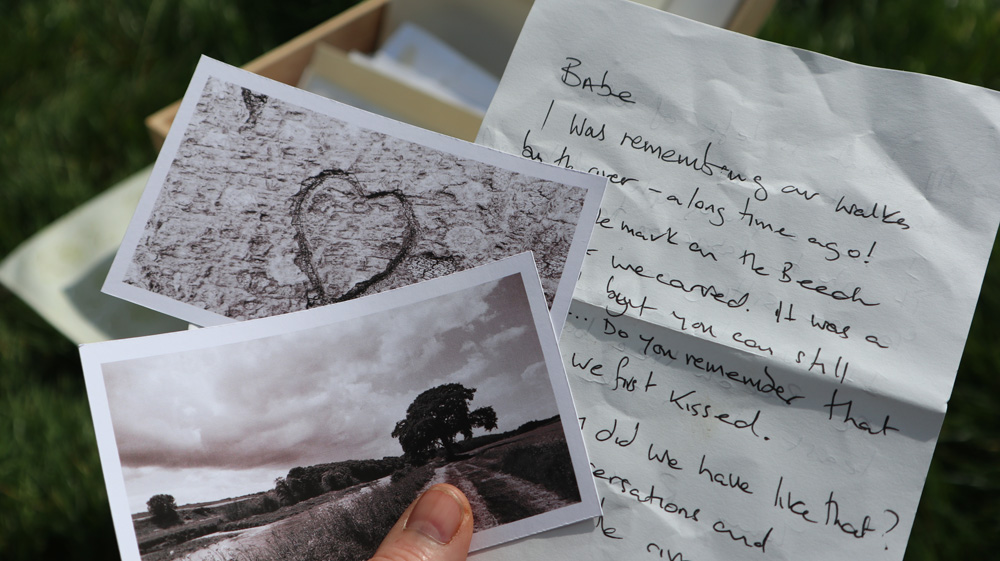 Babe
I was remembering our walks
by the river – a long time ago!
mark on the Beech
we carved. It was a
but you can still
... Do you remember that
we first kissed.
did we have like that?
ersations and